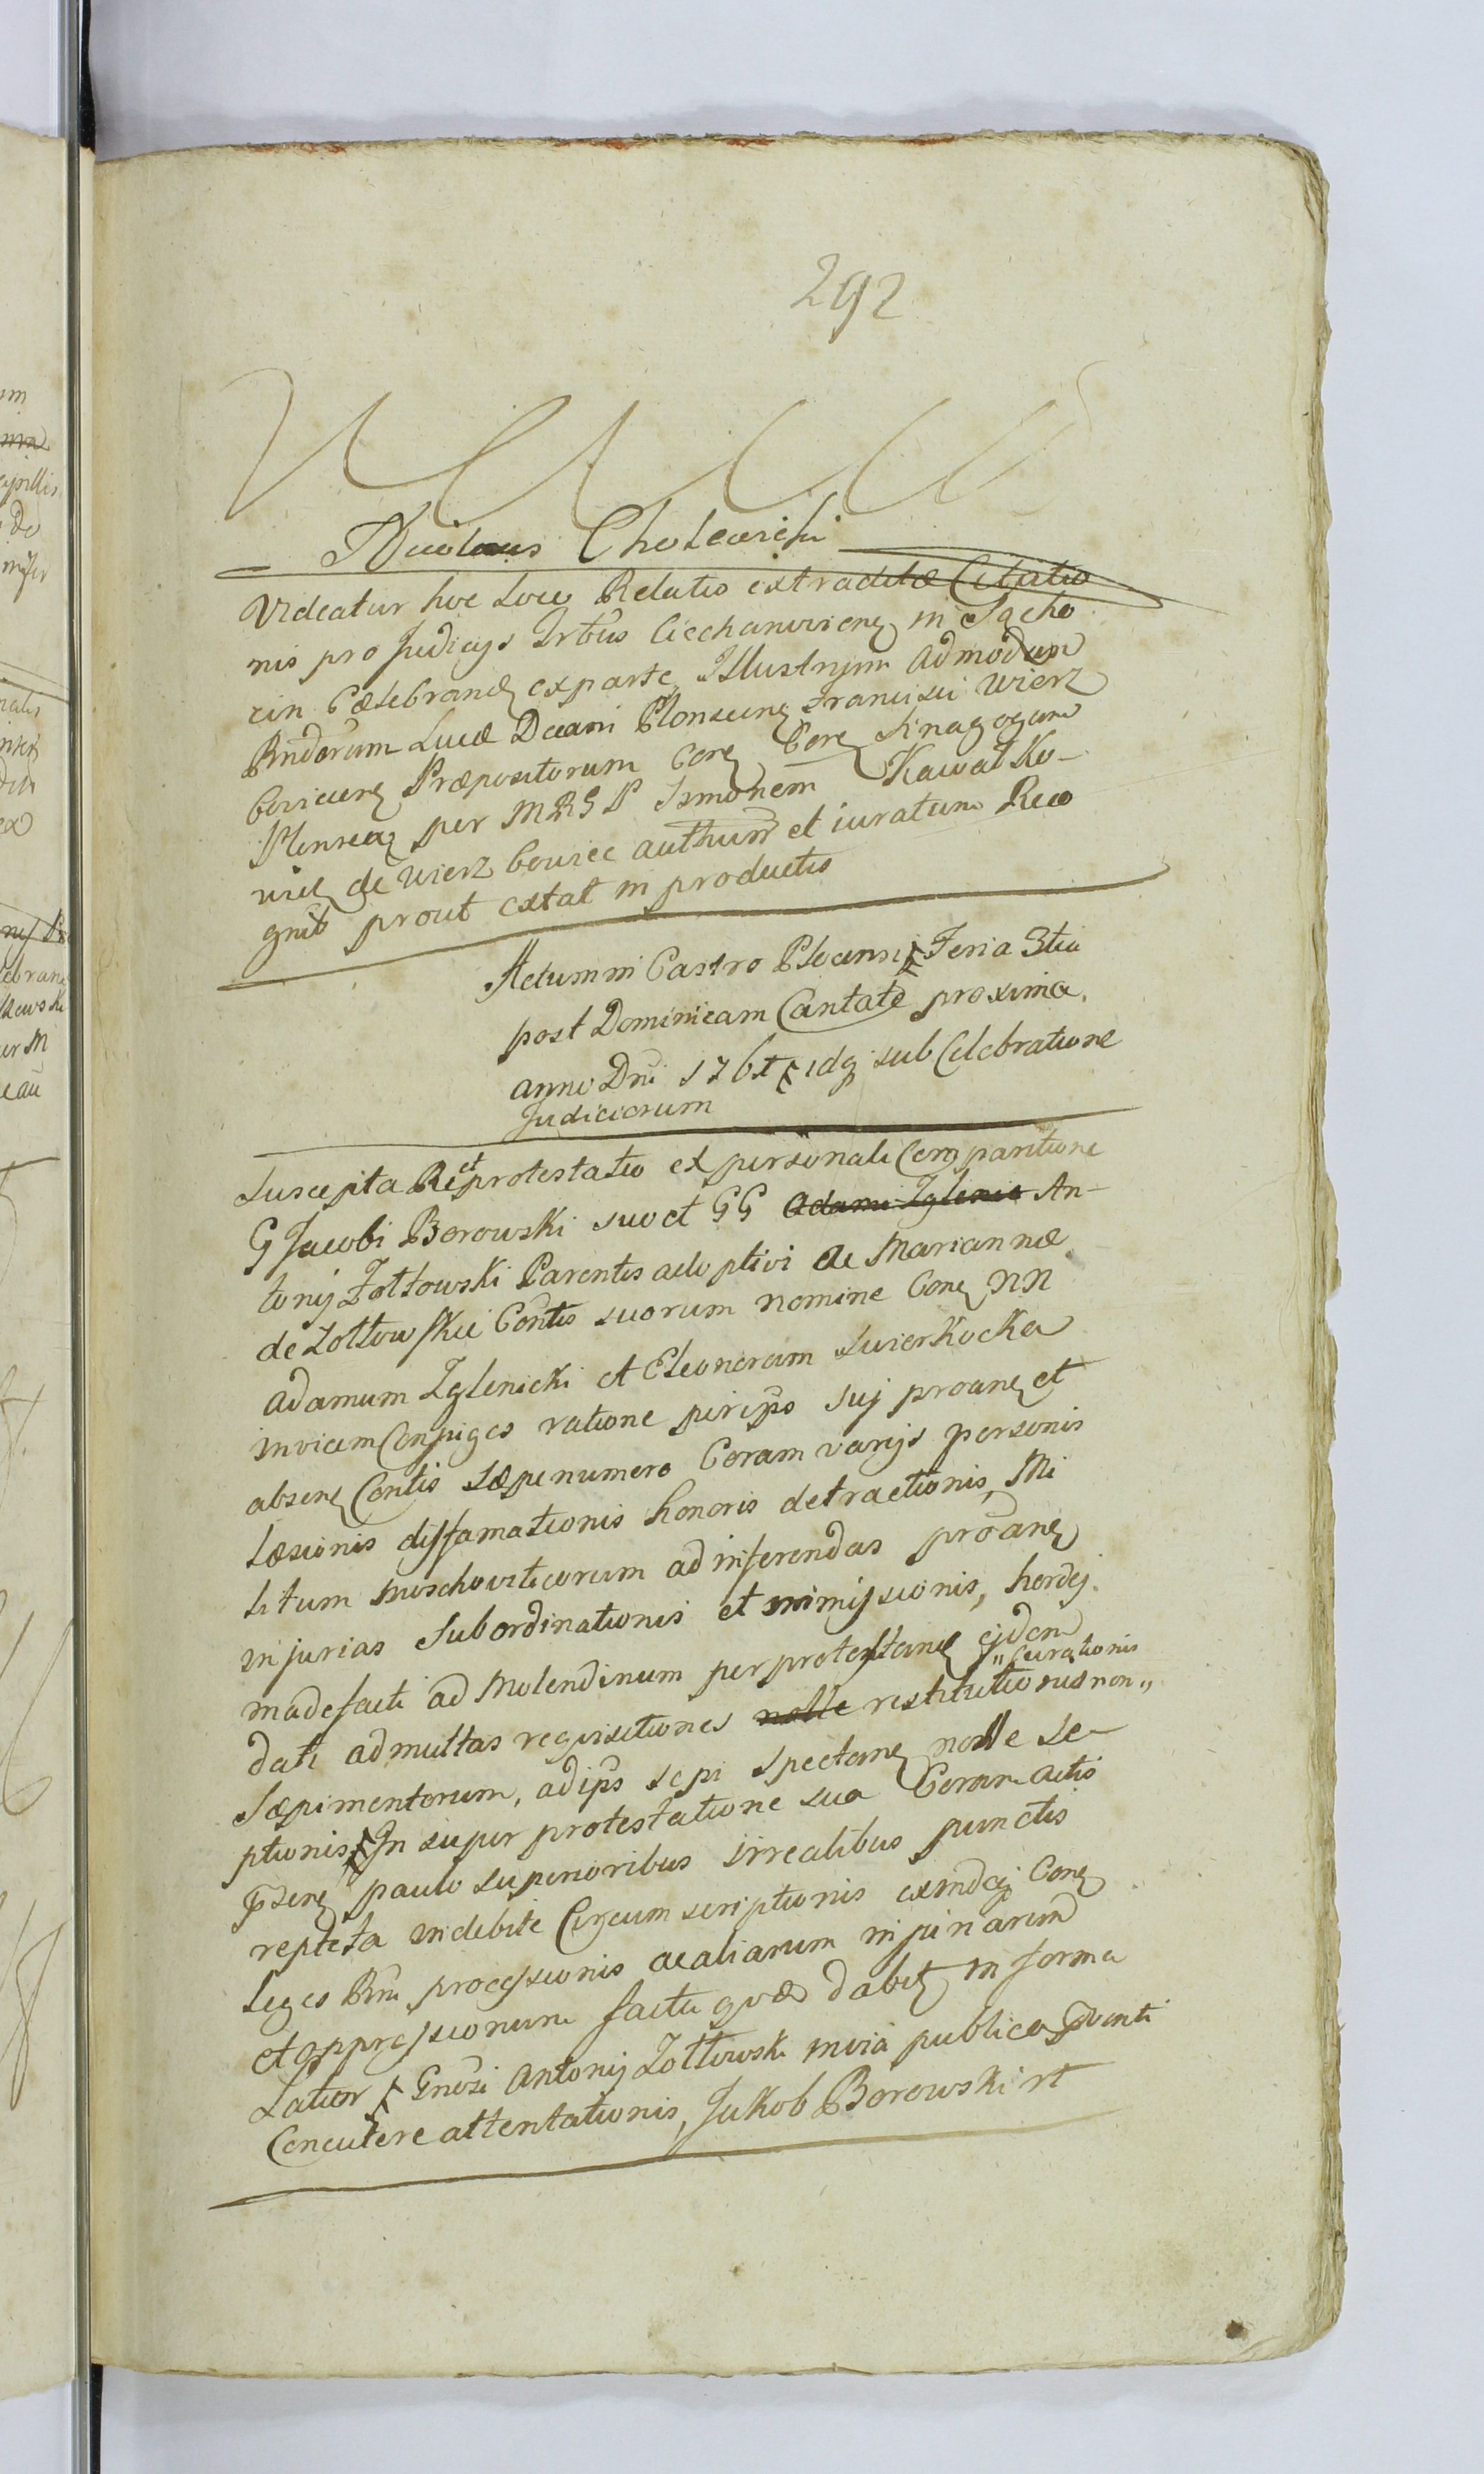 292
Nicolaus
Videatur hoc Loco Relatio extraditæ Citatio
nis pro Judicijs Ciechanovien in
cin Cælebran ex parte Illustrjm Admodum
Rndorum Lucæ Decani Plonscen Francisci Wierz
bovicien Præpositorum Con Sinagogam
Plonscen per MRGP Simonem Kawałko
wicz de Wierzboviec authum et iuratum Reco
gnit prout extat in productis
Actum in Castro Plocensi Feria 3tia
post Dominicam Cantate proxima
anno Dni idq sub Celebratione
Judiciorum
Suscepta Re et protestatio ex personali Comparitione
G Jacobi Borowski suo et GG Adami Zglenic An-
tonij Zołtowski Parentis adoptivi ac Mariannæ
de Zołtowskie Contis suorum nomine Con NN
Adamum Zglenicki et Eleonoram Swierkocka
invicem Conjuges ratione per ipso suj proane et
absen Contis sæpenumero Coram varijs personis
Læsionis diffamationis honoris detractionis, Mi
litum Moschoviticorum ad inferendas proane
injurias Subordinationis et immissionis, hordej
madefacti ad Molendinum per protestan ejdem
dati ad multas requisitiones nolle restitutionis non,,
,, Curationis
Sæpimentorum, ad ips sepi spectan nolle se-
ptionis In super protestatione sua Coram actis
psen paulo superioribus irrealibus punctis
repleta indebite Circumscriptionis exindej Con
Leges Rni processionis ac aliarum injuriarum
et oppressionum factu quæ dabit in forma
Latior Gnosi Antonij Zołtowski in via publica
Concutere attentationis, Jakob Borowski rt